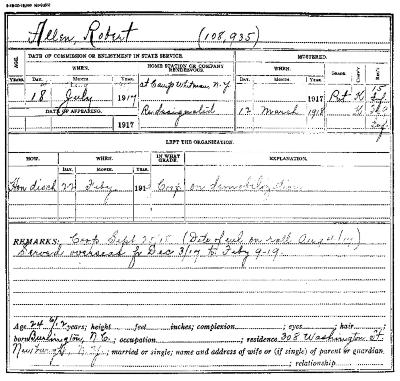 Allen, Robert (108,935)
DATE OF COMMISSION OR ENLISTMENT IN STATE SERVICE. HOME STATION OR COMPANY RENDEZVOUS. MUSTERED.
AGE. WHEN. WHEN. GRADE. CO. REG.
DAY. MONTH. YEAR. DAY. MONTH. YEAR.
18 July 1917 at Camp Whitman N.Y. 1917 Pvt K 15
DATE OF APPEARING. Redesignated 12 March 1918 K
1917 Inf
LEFT THE ORGANIZATION.
HOW. WHEN. IN WHAT GRADE. EXPLANATION.
DAY. MONTH. YEAR.
Hon disch 22 Feby 191 Corp on demobilization
REMARKS: Corp Sept 25/18 (Date of enl. on roll Aug
Served overseas fr Dec 3/17 to Feby 9-19.
Age 24 6/12 years; height feet inches; complexion ; eyes ; hair ;
born Burlington, N.C.; occupation ; residence 308 Washington St.
Newburgh N.Y.; married or single; name and address of wife or (if single) of parent or guardian
; relationship